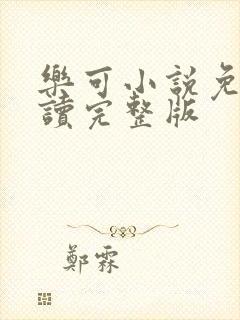 樂可小說免
讀完整版
鄭霖